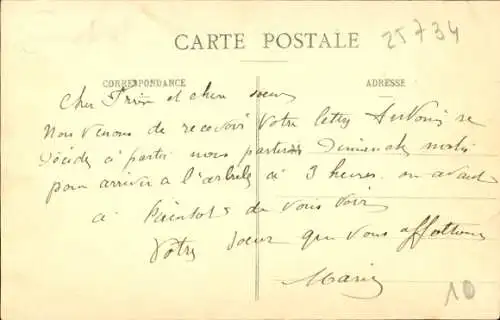 CARTE POSTALE
25734
CORRESPONDANCE
ADRESSE
Cher Frère et chère soeur
Nous venons de recevoir Votre lettre se
décide à partir nous partirons Dimanche matin
pour arriver à l'arbresle à 3 heures ou avant
à Bientôt de vous voir
Votre soeur que vous affectionne
Marie
10